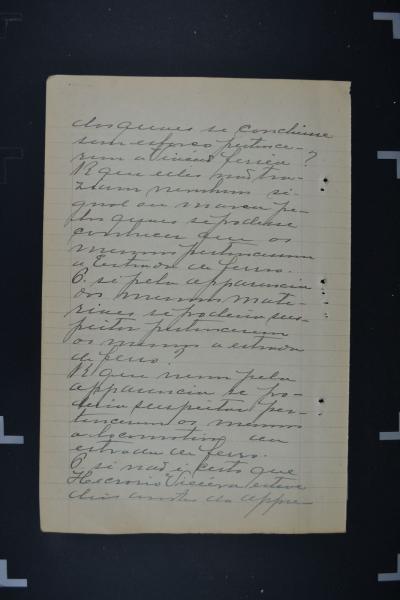 dos quaes se concluisse
sem esforço pertence-
rem a Viação ferrea?
R. que elles não tra-
ziam nenhum si-
gnal ou marca pe-
los quaes se podesse
conhecer que os
mesmos pertencessem
a Estrada de ferro.
P. si pela apparencia
dos mesmos mate-
riaes se poderia sus-
peitar pertencerem
os mesmos a estrada
de ferro?
R. que nem pela
apparencia se po-
deria suspeitar per-
tencerem os mesmos
a locomotiva da
estrada de ferro.
P. si não é certo que
Vieira esteve
dias antes da appre-